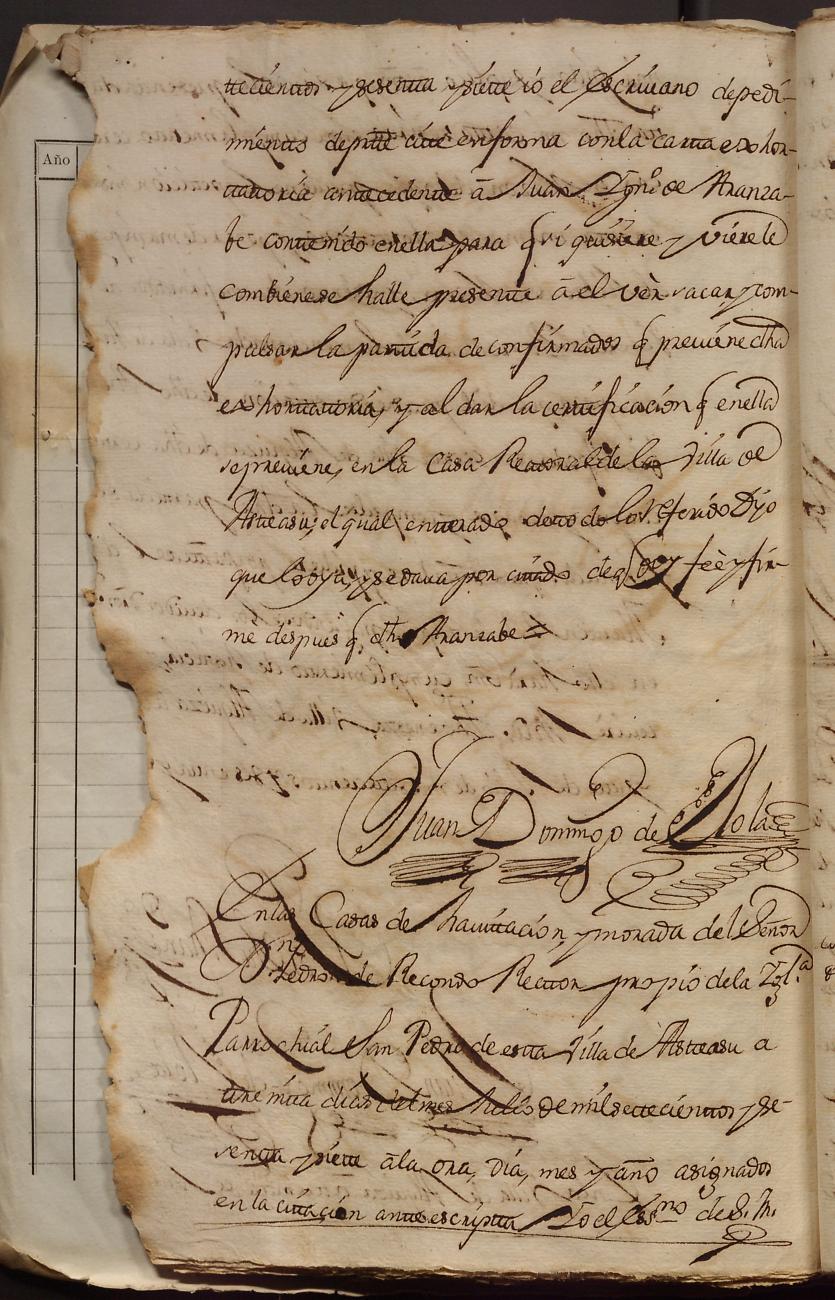 Año
tecientos y sesenta y siete io el Escriuano de pedi-
miento de pnte cite en forma con la carta exohor-
tatoria antecedente â Juan Ygnº de Aranza-
be contenido en ella para q si quisiere y viere le
combiene se halle presente â el vèr sacar, y com-
pulsar la partida de confirmados q preuiene dha
exhortatoria, y al dar la certificación q en ella
se preuiene, en la Casa Rectoral de la Villa de
Asteasu; el qual enterado de todo lo referido Dijo
que lo oya, y se daua por citado de q doy feè y fir-
me despues q dho Aranzabe =
Juan Domingo de
En las Casas de hauitación, y morada del Señor
Dn Pedro de Recondo Rector propio de la Yglª
Parrochiàl San Pedro de esta Villa de Asteasu a
treinta dias del mes Julio de mil setecientos y se-
senta y siete â la ora, dia, mes y año asignados
en la citaciòn ante escripta Yo el Essno de S. M.